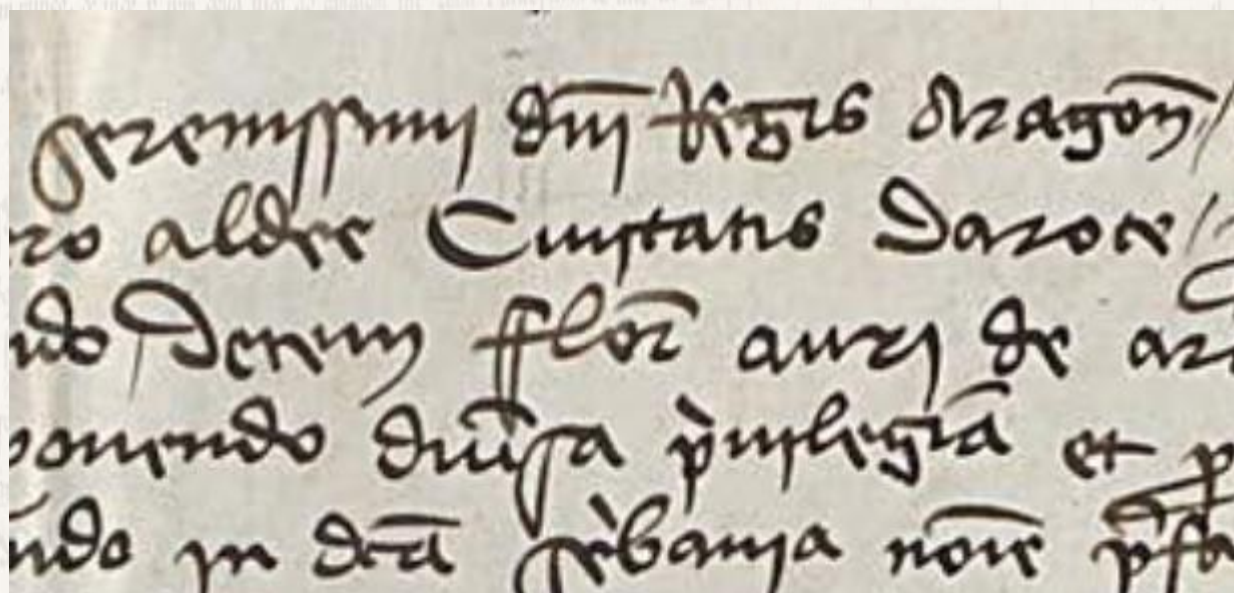 serenissimj dnj Regis Aragon /
ro aldee Ciujtatis Daroce /
ndo Decem fflor aurj de ar
ponendo diu'sa p'uilegia et p
ndo jn dcta noie